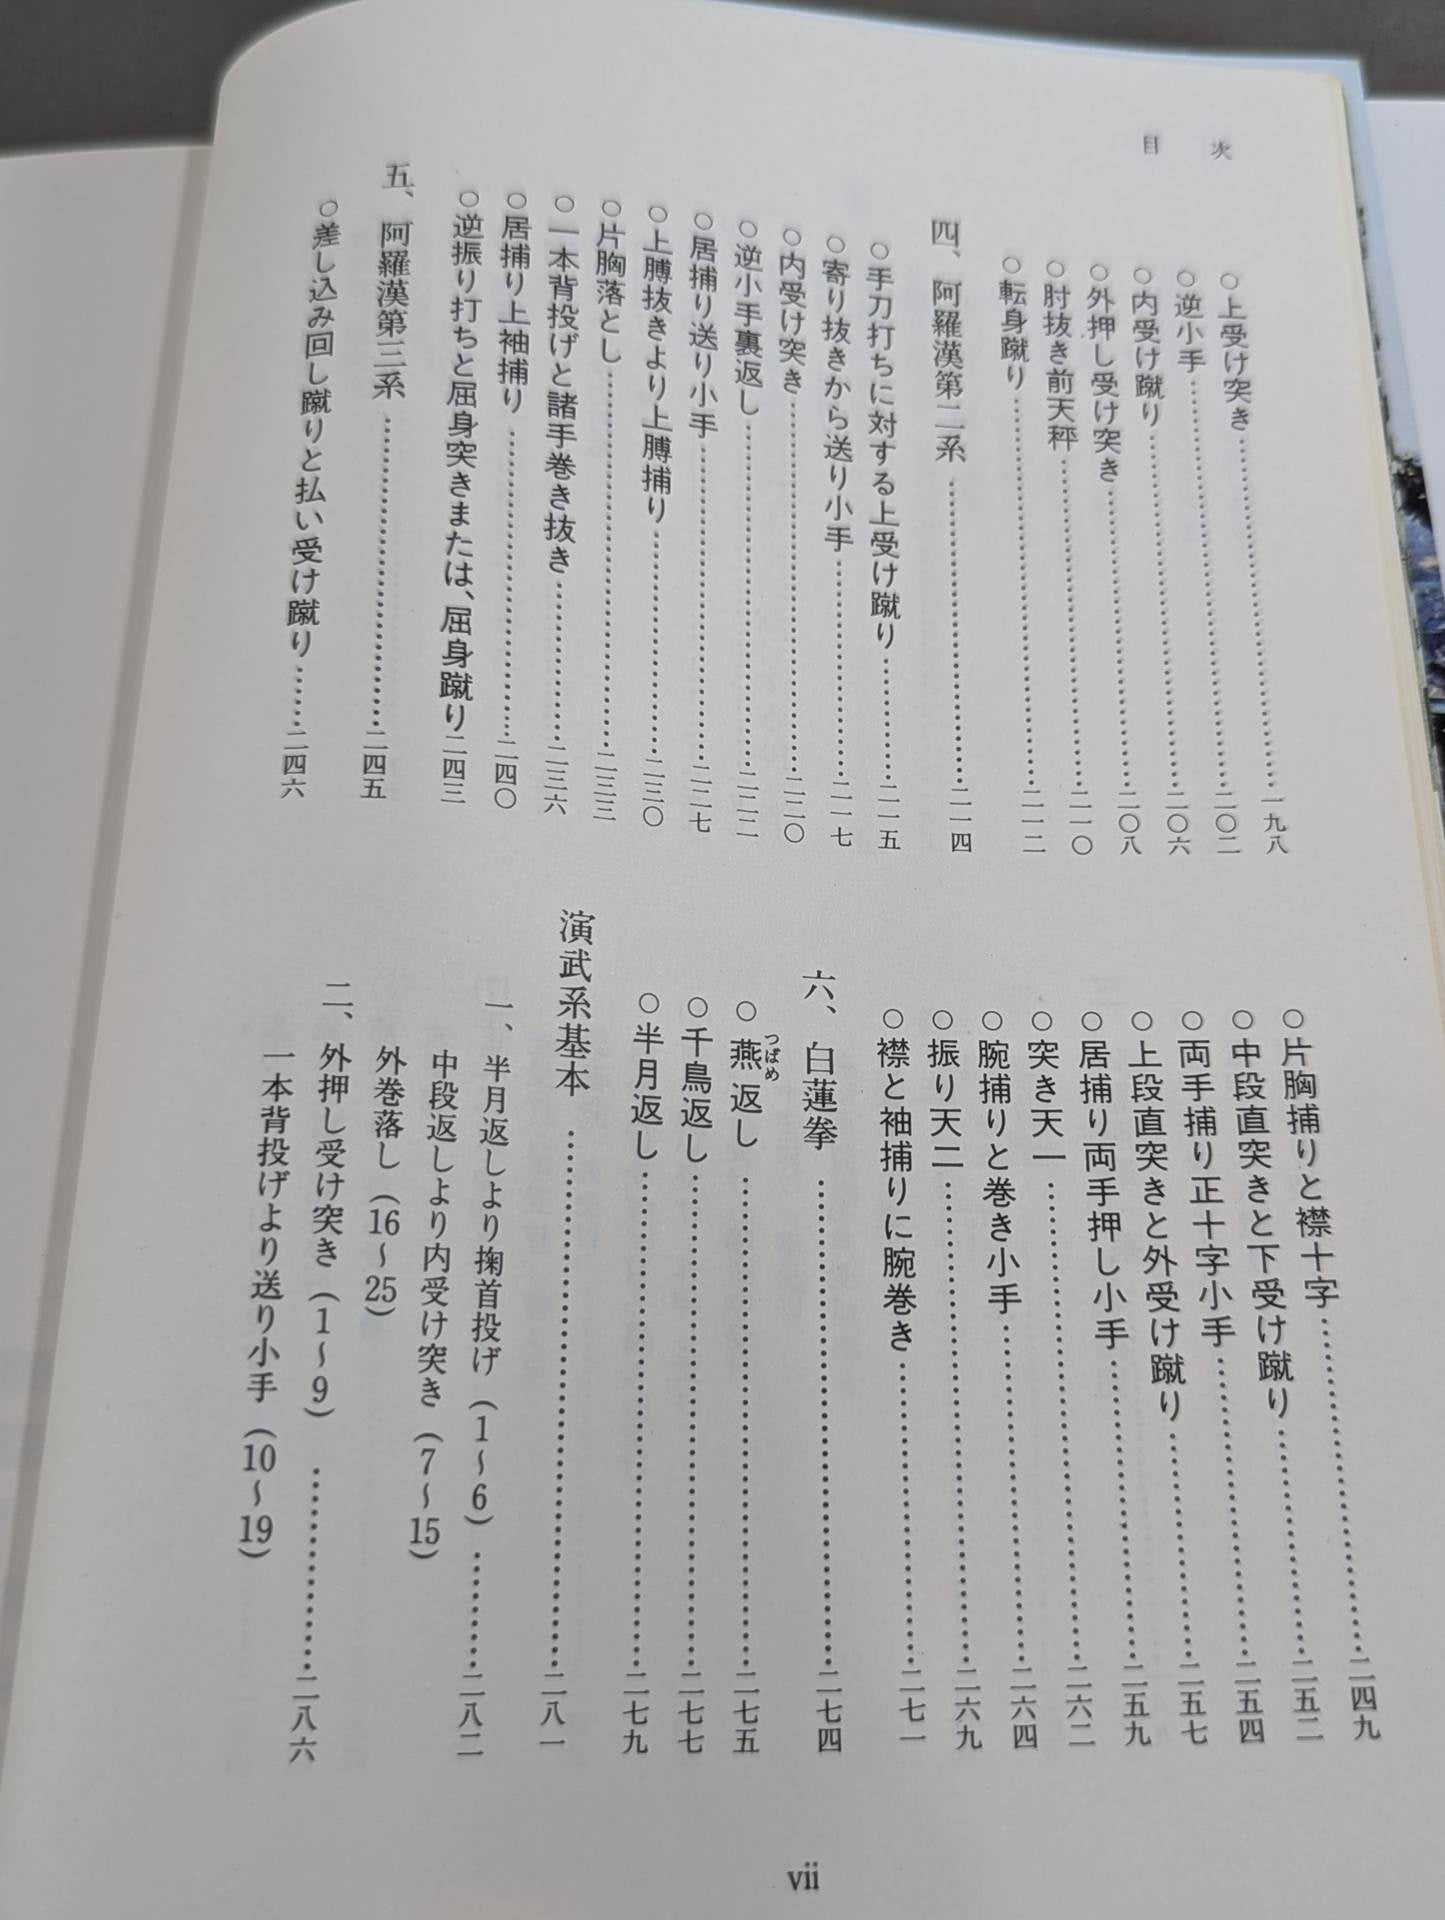 目次
○上受け突き……一九八
○逆小手……二〇二
○内受け蹴り……二〇六
○外押し受け突き……二〇八
○肘抜き前天秤……二一〇
○転身蹴り……二一二
四、阿羅漢第二系……二一四
○手刀打ちに対する上受け蹴り……二一五
○寄り抜きから送り小手……二一七
○内受け突き……二二〇
○逆小手裏返し……二二二
○居捕り送り小手……二二七
○上膊抜きより上膊捕り……二三〇
○片胸落とし……二三三
○一本背投げと諸手巻き抜き……二三六
○居捕り上袖捕り……二四〇
○逆振り打ちと屈身突きまたは、屈身蹴り二四三
五、阿羅漢第三系……二四五
○差し込み回し蹴りと払い受け蹴り……二四六
○片胸捕りと襟十字……二四九
○中段直突きと下受け蹴り……二五二
○両手捕り正十字小手……二五四
○上段直突きと外受け蹴り……二五七
○居捕り両手押し小手……二五九
○突き天一……二六二
○腕捕りと巻き小手……二六四
○振り天二……二六九
○襟と袖捕りに腕巻き……二七一
六、白蓮拳……二七四
○燕返し……二七五
つばめ
○千鳥返し……二七七
○半月返し……二七九
演武系基本……二八一
一、半月返しより掬首投げ(1〜6)……二八二
中段返しより内受け突き(7〜15)
外巻落し(16〜25)
二、外押し受け突き(1〜9)……二八六
一本背投げより送り小手(10〜19)
vii